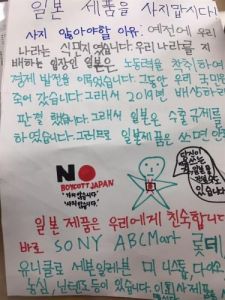 일본 제품을 사지맙시다!
사지 않아야할 이유. 예전에 우리
나라는 식민지였습니다. 우리나라를 지
배하는 입장인 일본은 노동력을 착취하여
경제 발전을 이뤘었습니다. 그동안 우리 국민은
죽어 갔습니다. 그래서 2019년 배상하라
판결 했습니다. 그래서 일본은 수출 규제를
하였습니다. 그러므로 일본제품을 쓰면 안
NO
BOYCOTT JAPAN
"가지 않습니다"
"사지 않습니다"
있습니다
일본 제품은 우리에게 친숙합니다
바로 SONY ABCMart 롯데
유니클로 세븐일레븐 미니스톱, 다이소
농심, 닌텐도 등이 있습니다. 이 회사 제품을